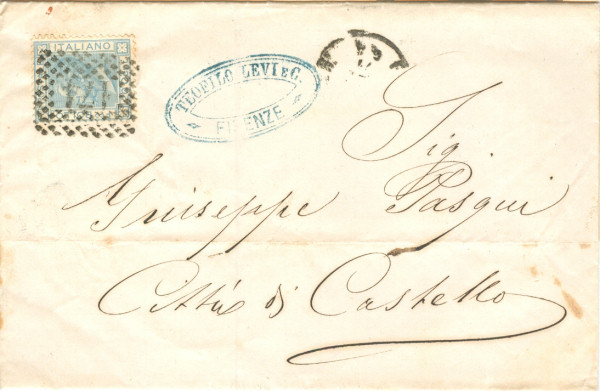 ITALIANO
TEOFILO LEVI e C.
FIRENZE
Sig.
Giuseppe Pasqui
Città di Castello